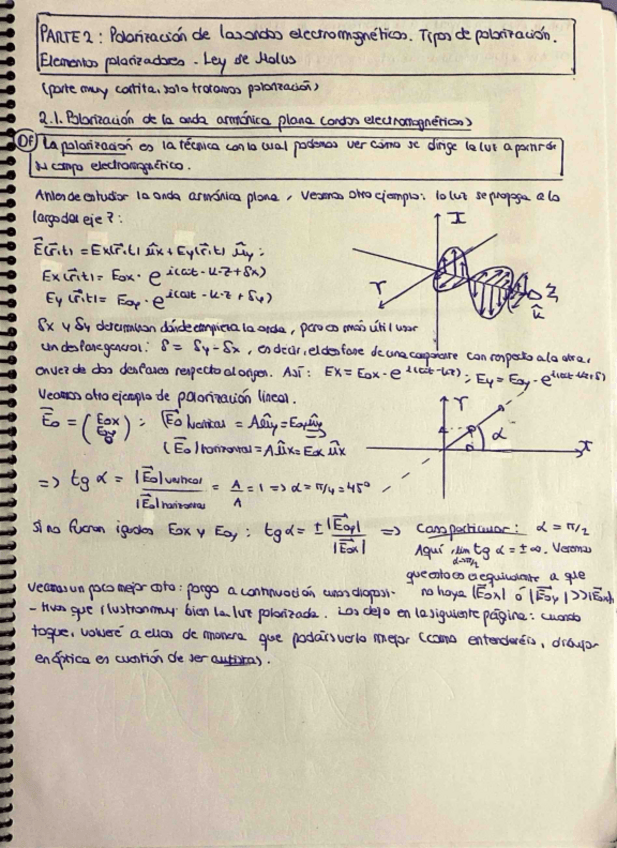 PARTE 2: Polarización de las ondas electromagnéticas. Tipos de polarización.
Elementos polarizadores. Ley de Malus
(parte muy cortita, solo tratamos polarización)
2.1. Polarización de la onda armónica plana (ondas electromagnéticas)
DF La polarización es la técnica con la cual podemos ver cómo se dirige la luz a partir de
su campo electromagnético.
Antes de estudiar la onda armónica plana, veamos otro ejemplo: la luz se propaga a lo
largo del eje z:
E⃗(r⃗,t) = Ex(r⃗,t) ûx + Ey(r⃗,t) ûy;
Ex(r⃗,t) = Eox · e^i(ωt - k·z + δx)
Ey(r⃗,t) = Eoy · e^i(ωt - k·z + δy)
X
Y
Z
û
δx y δy determinan dónde empieza la onda, pero es más útil usar
un desfase general: δ = δy - δx, es decir, el desfase de una componente con respecto a la otra,
en vez de dos desfases respecto al origen. Así: Ex = Eox · e^i(ωt-kz); Ey = Eoy · e^i(ωt-kz+δ)
Veamos otro ejemplo de polarización lineal.
E⃗o = (Eox Eoy); (E⃗o)vertical = Aûy = Eoy ûy
(E⃗o)horizontal = A ûx = Eox ûx
Y
α
X
=> tg α = |E⃗o|vertical / |E⃗o|horizontal = A/A = 1 => α = π/4 = 45°
Si no fueran iguales Eox y Eoy: tg α = ± |E⃗oy| / |E⃗ox| => Caso particular: α = π/2
Aquí, lim α→π/2 tg α = ± ∞. Veremos
que esto es equivalente a que
no haya |E⃗ox| ó |E⃗oy| >> |E⃗ox|
Veamos un poco mejor esto: pongo a continuación unas diaposi-
-tivas que ilustran muy bien la luz polarizada. Las dejo en la siguiente página: cuando
toque, volveré a ellas de manera que podáis verlo mejor (como entenderéis, dibujar
en óptica es cuestión de ser autista).